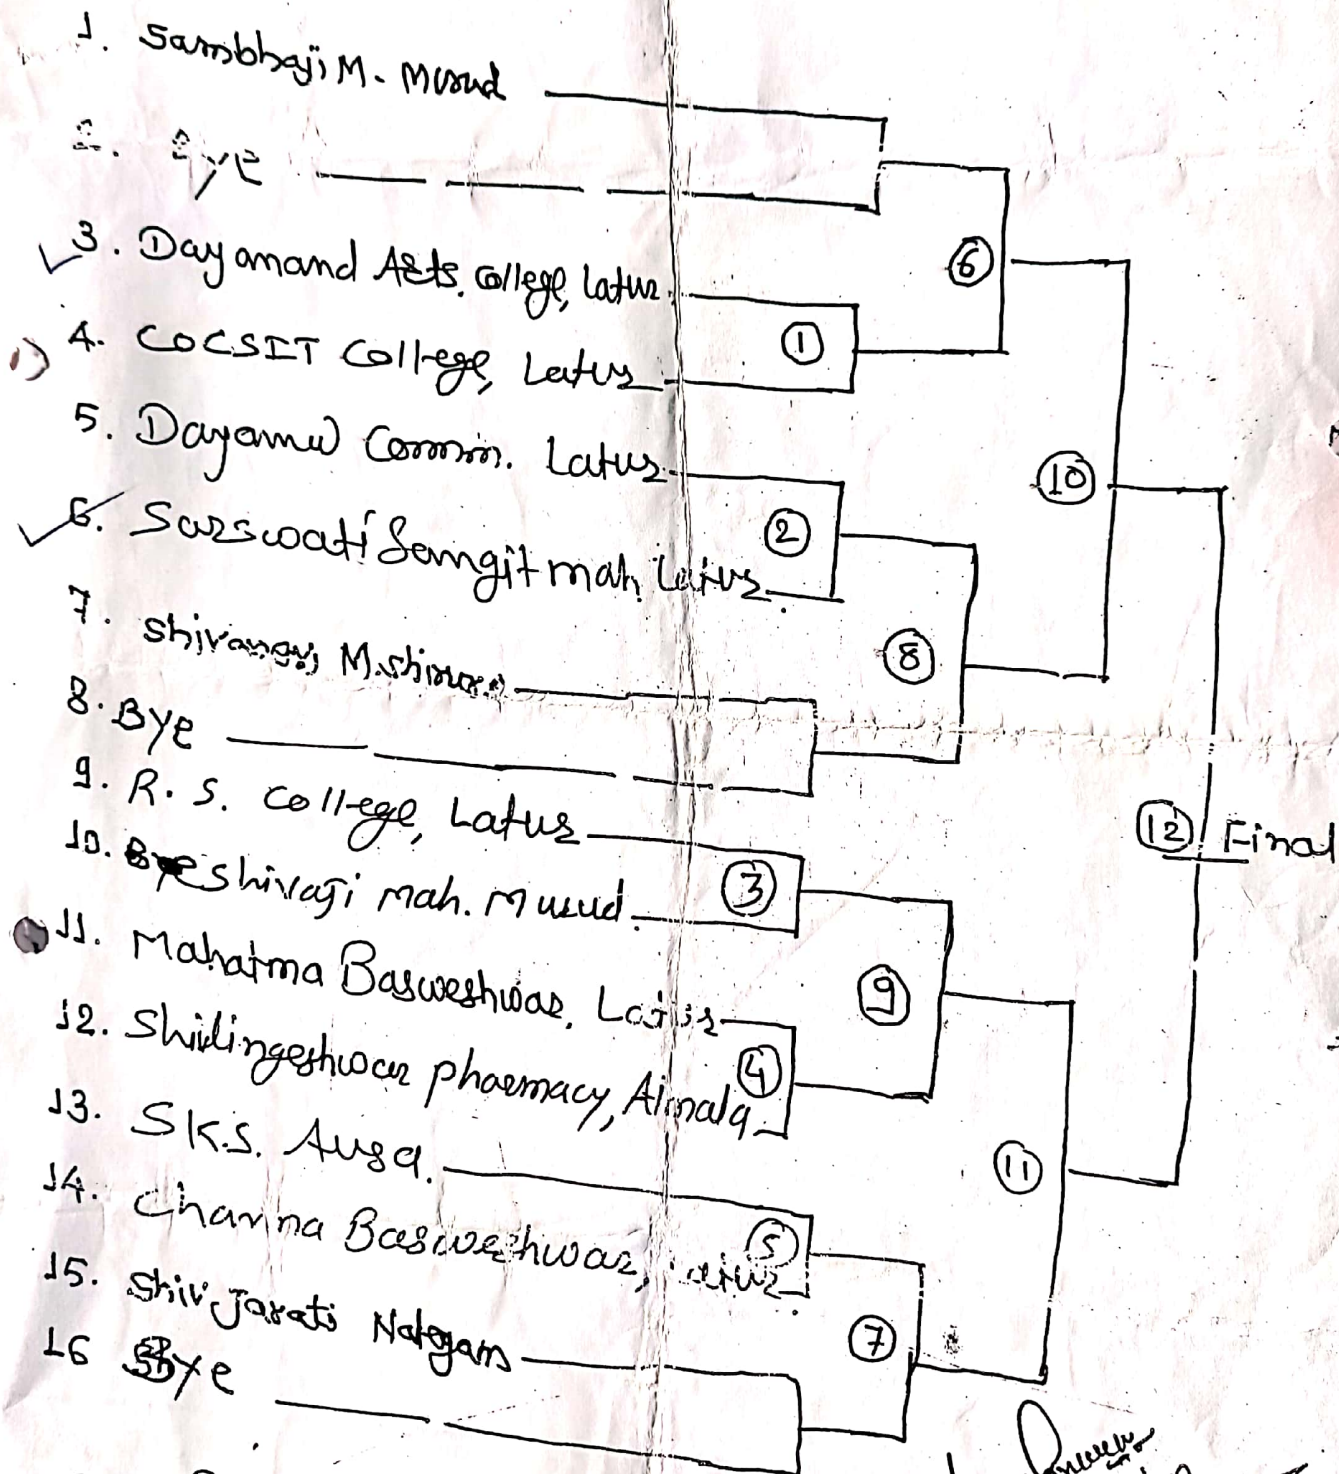 1. Sambhaji M. Murud
2. Bye
3. Dayanand Arts. College, Latur
⑥
1) 4. COCSIT College, Latur
①
5. Dayanand Comm. Latur
⑩
6. Sarswati Sangit mah. Latur
②
7. Shivangi M.
⑧
8. Bye
9. R. S. College, Latur
⑫ Final
10. Shivaji Mah. Murud
③
11. Mahatma Basweshwar, Latur
⑨
12. Shivlingeshwar Pharmacy, Almala
④
13. S.K.S. Ausa.
⑪
14. Channa Basweshwar, Latur
⑤
15. Shiv Jagrati
⑦
16 Bye